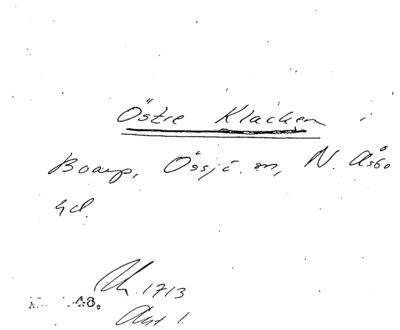 Östre Kläcken i
Boarp, Össjö sn, N. Åsbo
hd.
1713
48.
Akt 1.